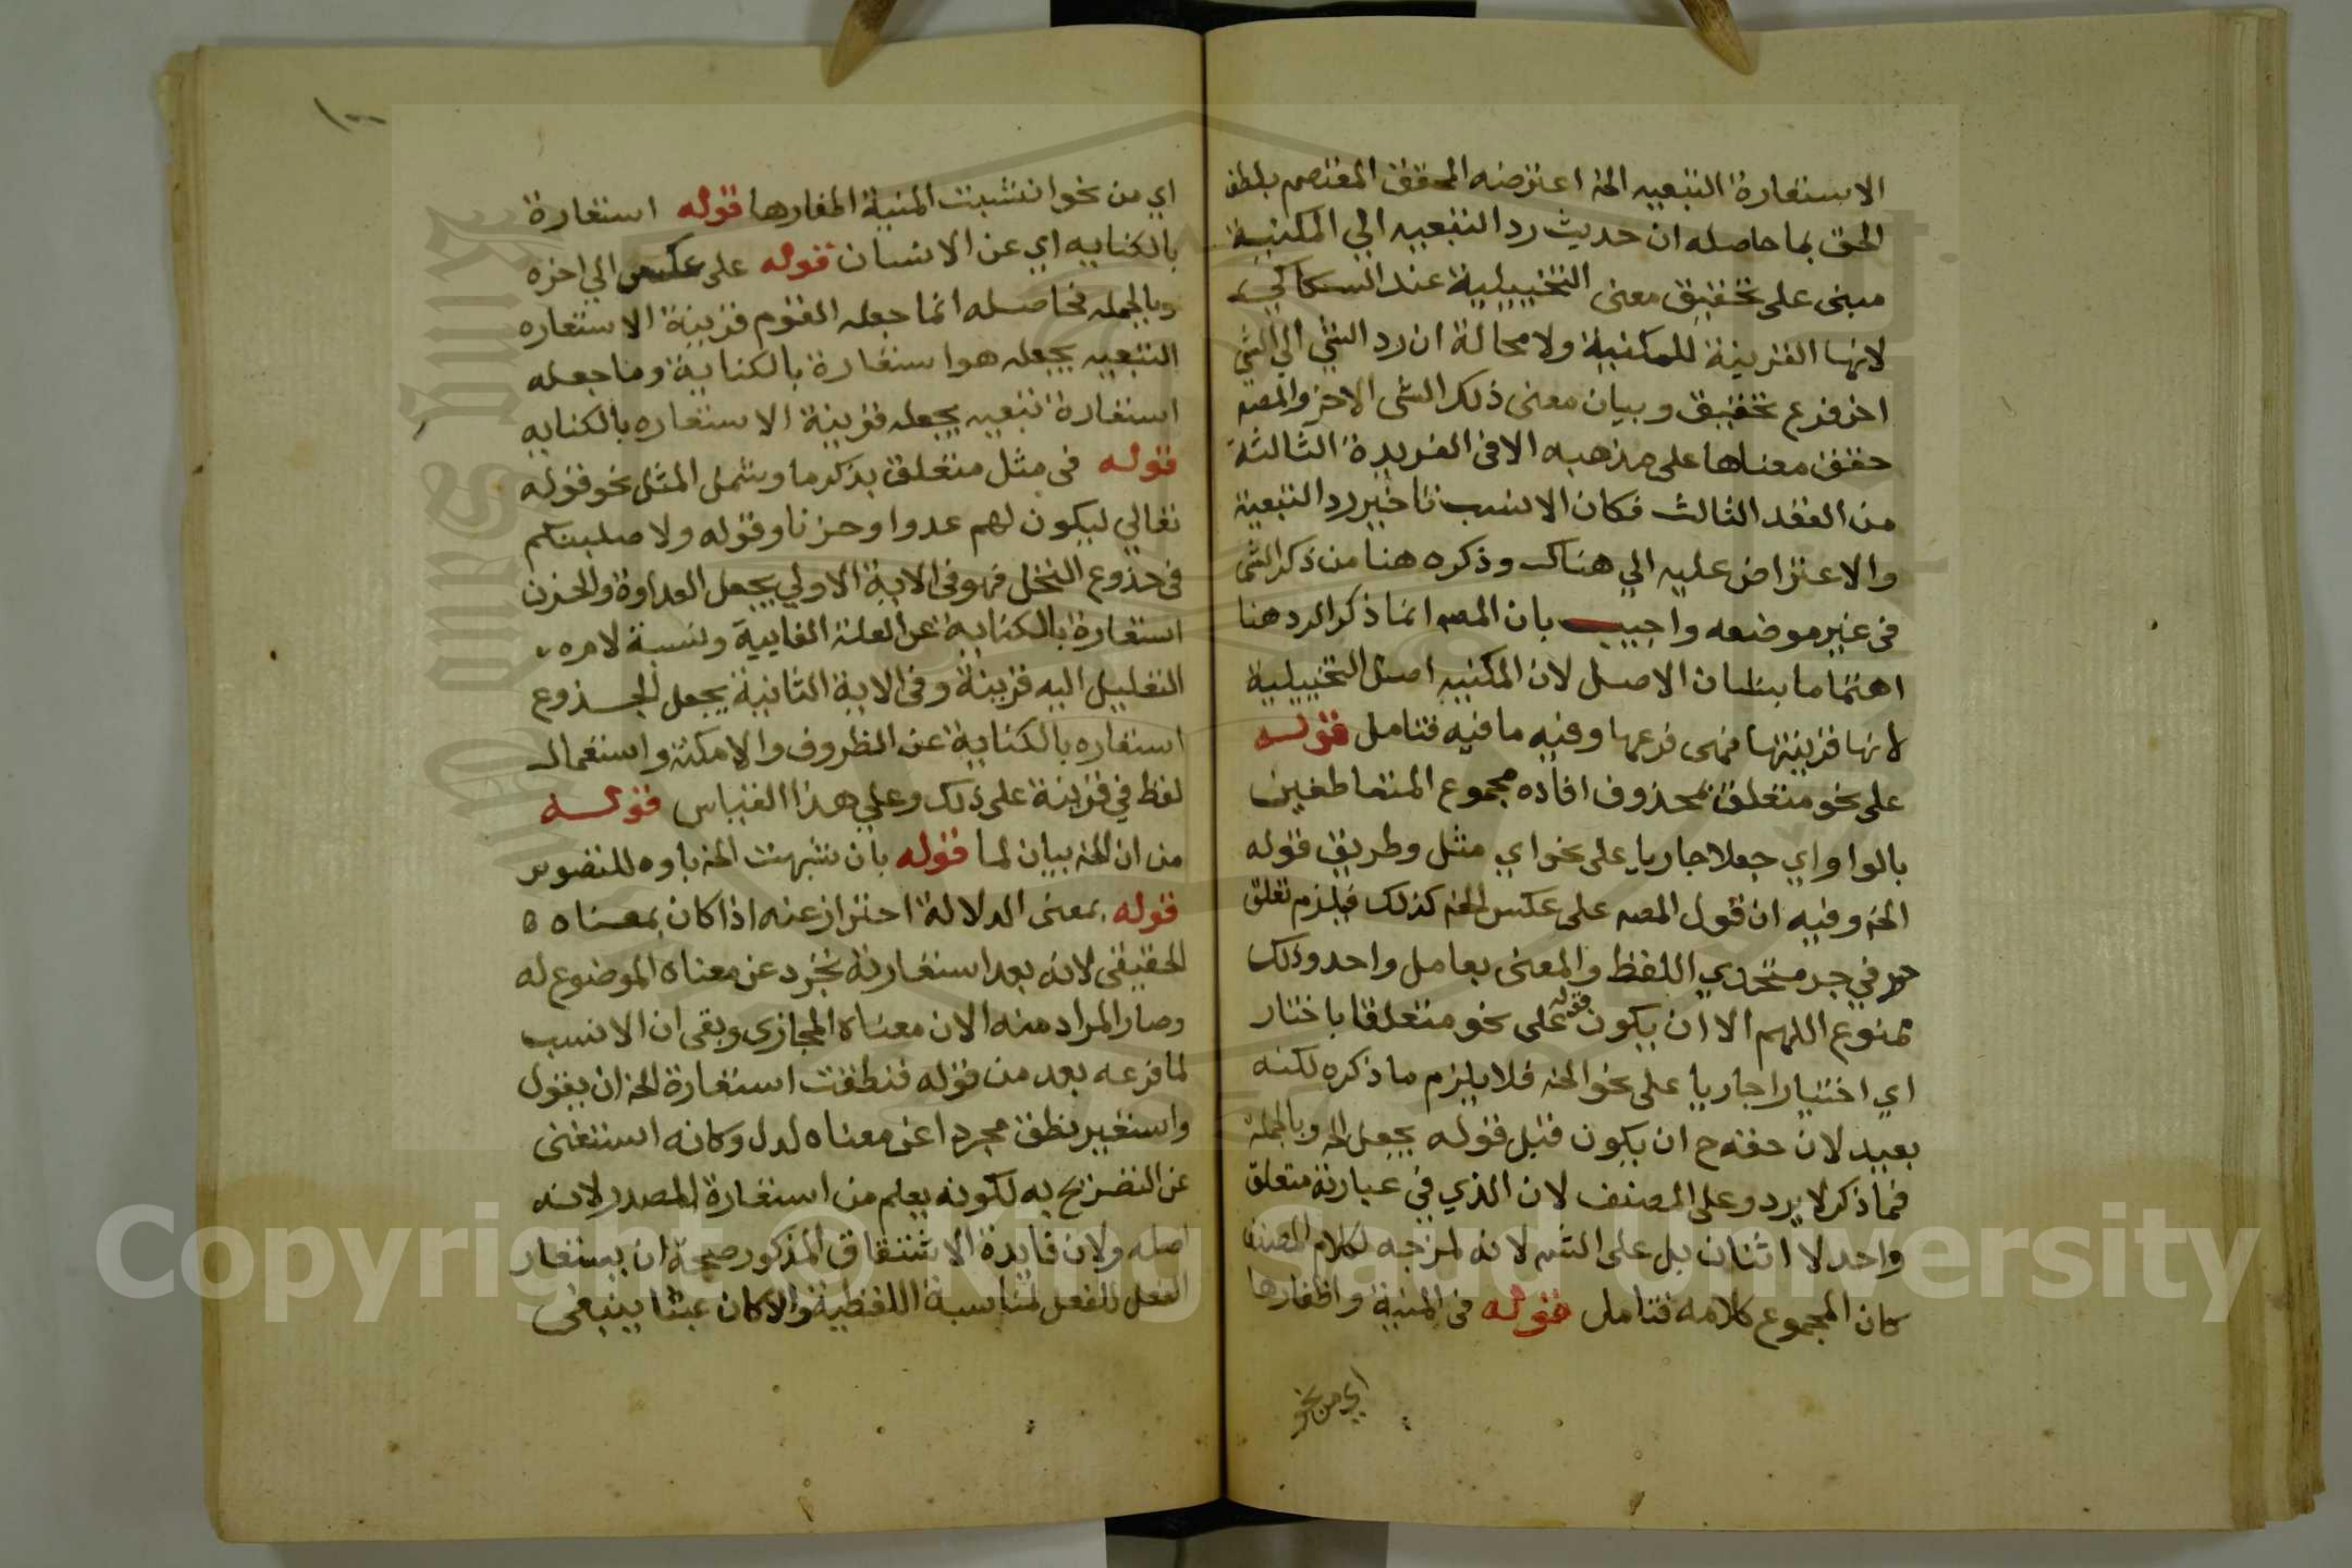 الاستعارة التبعيه الخ اعترضه المحقق المعتصم بلطف
الحق بما حاصله ان حديث رد التبعيه الي المكنية
مبنى على تحقيق معنى التخييلية عند السكاكي
لانها القرينة للمكنية ولا محالة ان رد الشي الي الشي
اخر فرع تحقيق وبيان معنى ذلك الشى الاخر والمصه
حقق معناها على مذهبه الا فى الفريدة الثالثة
من العقد الثالث فكان الانسب تاخير رد التبعية
والاعتراض عليه الي هناك وذكره هنا من ذكر الشى
فى غير موضعه واجيب بان المصه انما ذكر الرد هنا
اهتماما ببطلان الاصل لان المكنيه اصل التخييلية
لانها قرينتها فهى فرعها وفيه ما فيه فتامل قوله
على نحو متعلق بمحذوف افاده مجموع المتعاطفين
بالواو اي جعلا جاريا على نحو اي مثل وطريق قوله
الخ وفيه ان قول المصه على عكس الخ كذلك فيلزم تعلق
حرفي جر متحدي اللفظ والمعنى بعامل واحد وذلك
ممنوع اللهم الا ان يكون قوله على نحو متعلقا باختار
اي اختيارا جاريا على نحو الخ فلا يلزم ما ذكره لكنه
بعيد لان حقه ح ان يكون قبل قوله بجعل الخ وبالجملة
فما ذكر لا يرد على المصنف لان الذي في عبارته متعلق
واحد لا اثنان بل على الشه لانه لمزجه لكلام المصنف
كان المجموع كلامه فتامل قوله فى المنية واظفارها
اي من نحو
اي من نحو انشبت المنية اظفارها قوله استعارة
بالكنايه اي عن الانسان قوله على عكس الي اخره
وبالجمله فحاصله انما جعله القوم قرينة الاستعاره
التبعيه يجعله هو استعارة بالكناية وما جعله
استعارة تبعيه يجعله قرينة الاستعاره بالكنايه
قوله فى مثل متعلق بذكر ما وشمل المثل نحو قوله
تعالي ليكون لهم عدوا وحزنا وقوله ولاصلبنكم
فى جذوع النخل فهو فى الاية الاولي يجعل العداوة والحزن
استعارة بالكناية عن العلة الغايية ونسبة لامه
التعليل اليه قرينة وفى الاية الثانية يجعل الجذوع
استعاره بالكناية عن الظروف والامكنة واستعمال
لفظ في قرينة على ذلك وعلي هذا القياس قوله
من ان الخ بيان لما قوله بان شبهت الخ باوه للتصوير
قوله بمعنى الدلالة احتراز عنه اذا كان بمعناه
الحقيقى لانه بعد استعارته تجرد عن معناه الموضوع له
وصار المراد منه الان معناه المجازى وبقى ان الانسب
لما فرعه بعد من قوله فنطقت استعارة الخ ان يقول
واستعير نطق مجردا عن معناه لدل وكانه استغنى
عن التصريح به لكونه يعلم من استعارة المصدر لانه
اصله ولان فايدة الاشتقاق المذكور صحة ان يستعار
الفعل للفعل لمناسبة اللفظية والا كان عبثا ينبغى
Copyright © King Saud University